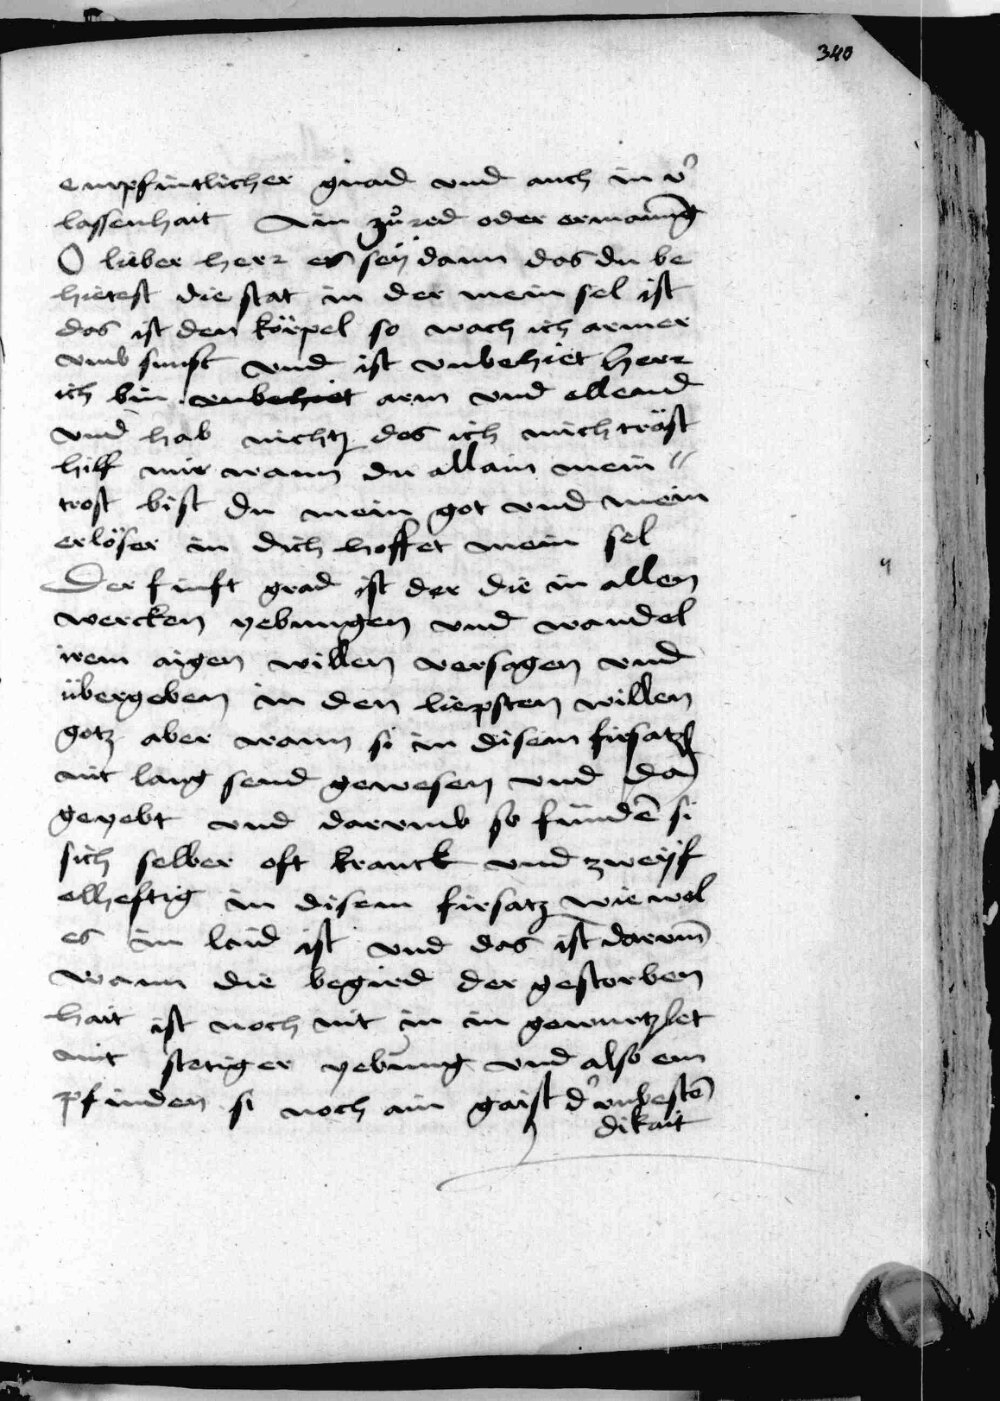 340
empfintlicher gnad vnd auch in v̉
lassenhait Ain zů red oder ermanūg
O lieber herr es seÿ dann das du be
hietest die stat in der mein sel ist
das ist den körpel so wach ich armer
vmb sunst vnd ist vnbehiet herr
ich bin vnbehiet arm vnd ellend
vnd hab nichtz das ich mich tröst
hilf mir wann du allain mein
trost bist du mein got vnd mein
erlöser in dich hoffet mein sel
Der finft grad ist der die in allen
wercken yebungen vnd wandel
irem aigen willen versagen vnd
übergeben in den liepsten willen
gotz aber wann si in disem firsatz
nit lang send gewesen vnd da
geyebt vnd darvmb so findē si
sich selber oft kranck vnd zweÿf
elheftig in disem firsatz wie wol
es im laid ist vnd das ist darvm̄
wann die begird der gestorben
hait ist noch nit in in gewurtzlet
mit stetiger yebung vnd also em
pfinden si noch ain gaist d̉ vnbestē
dikait